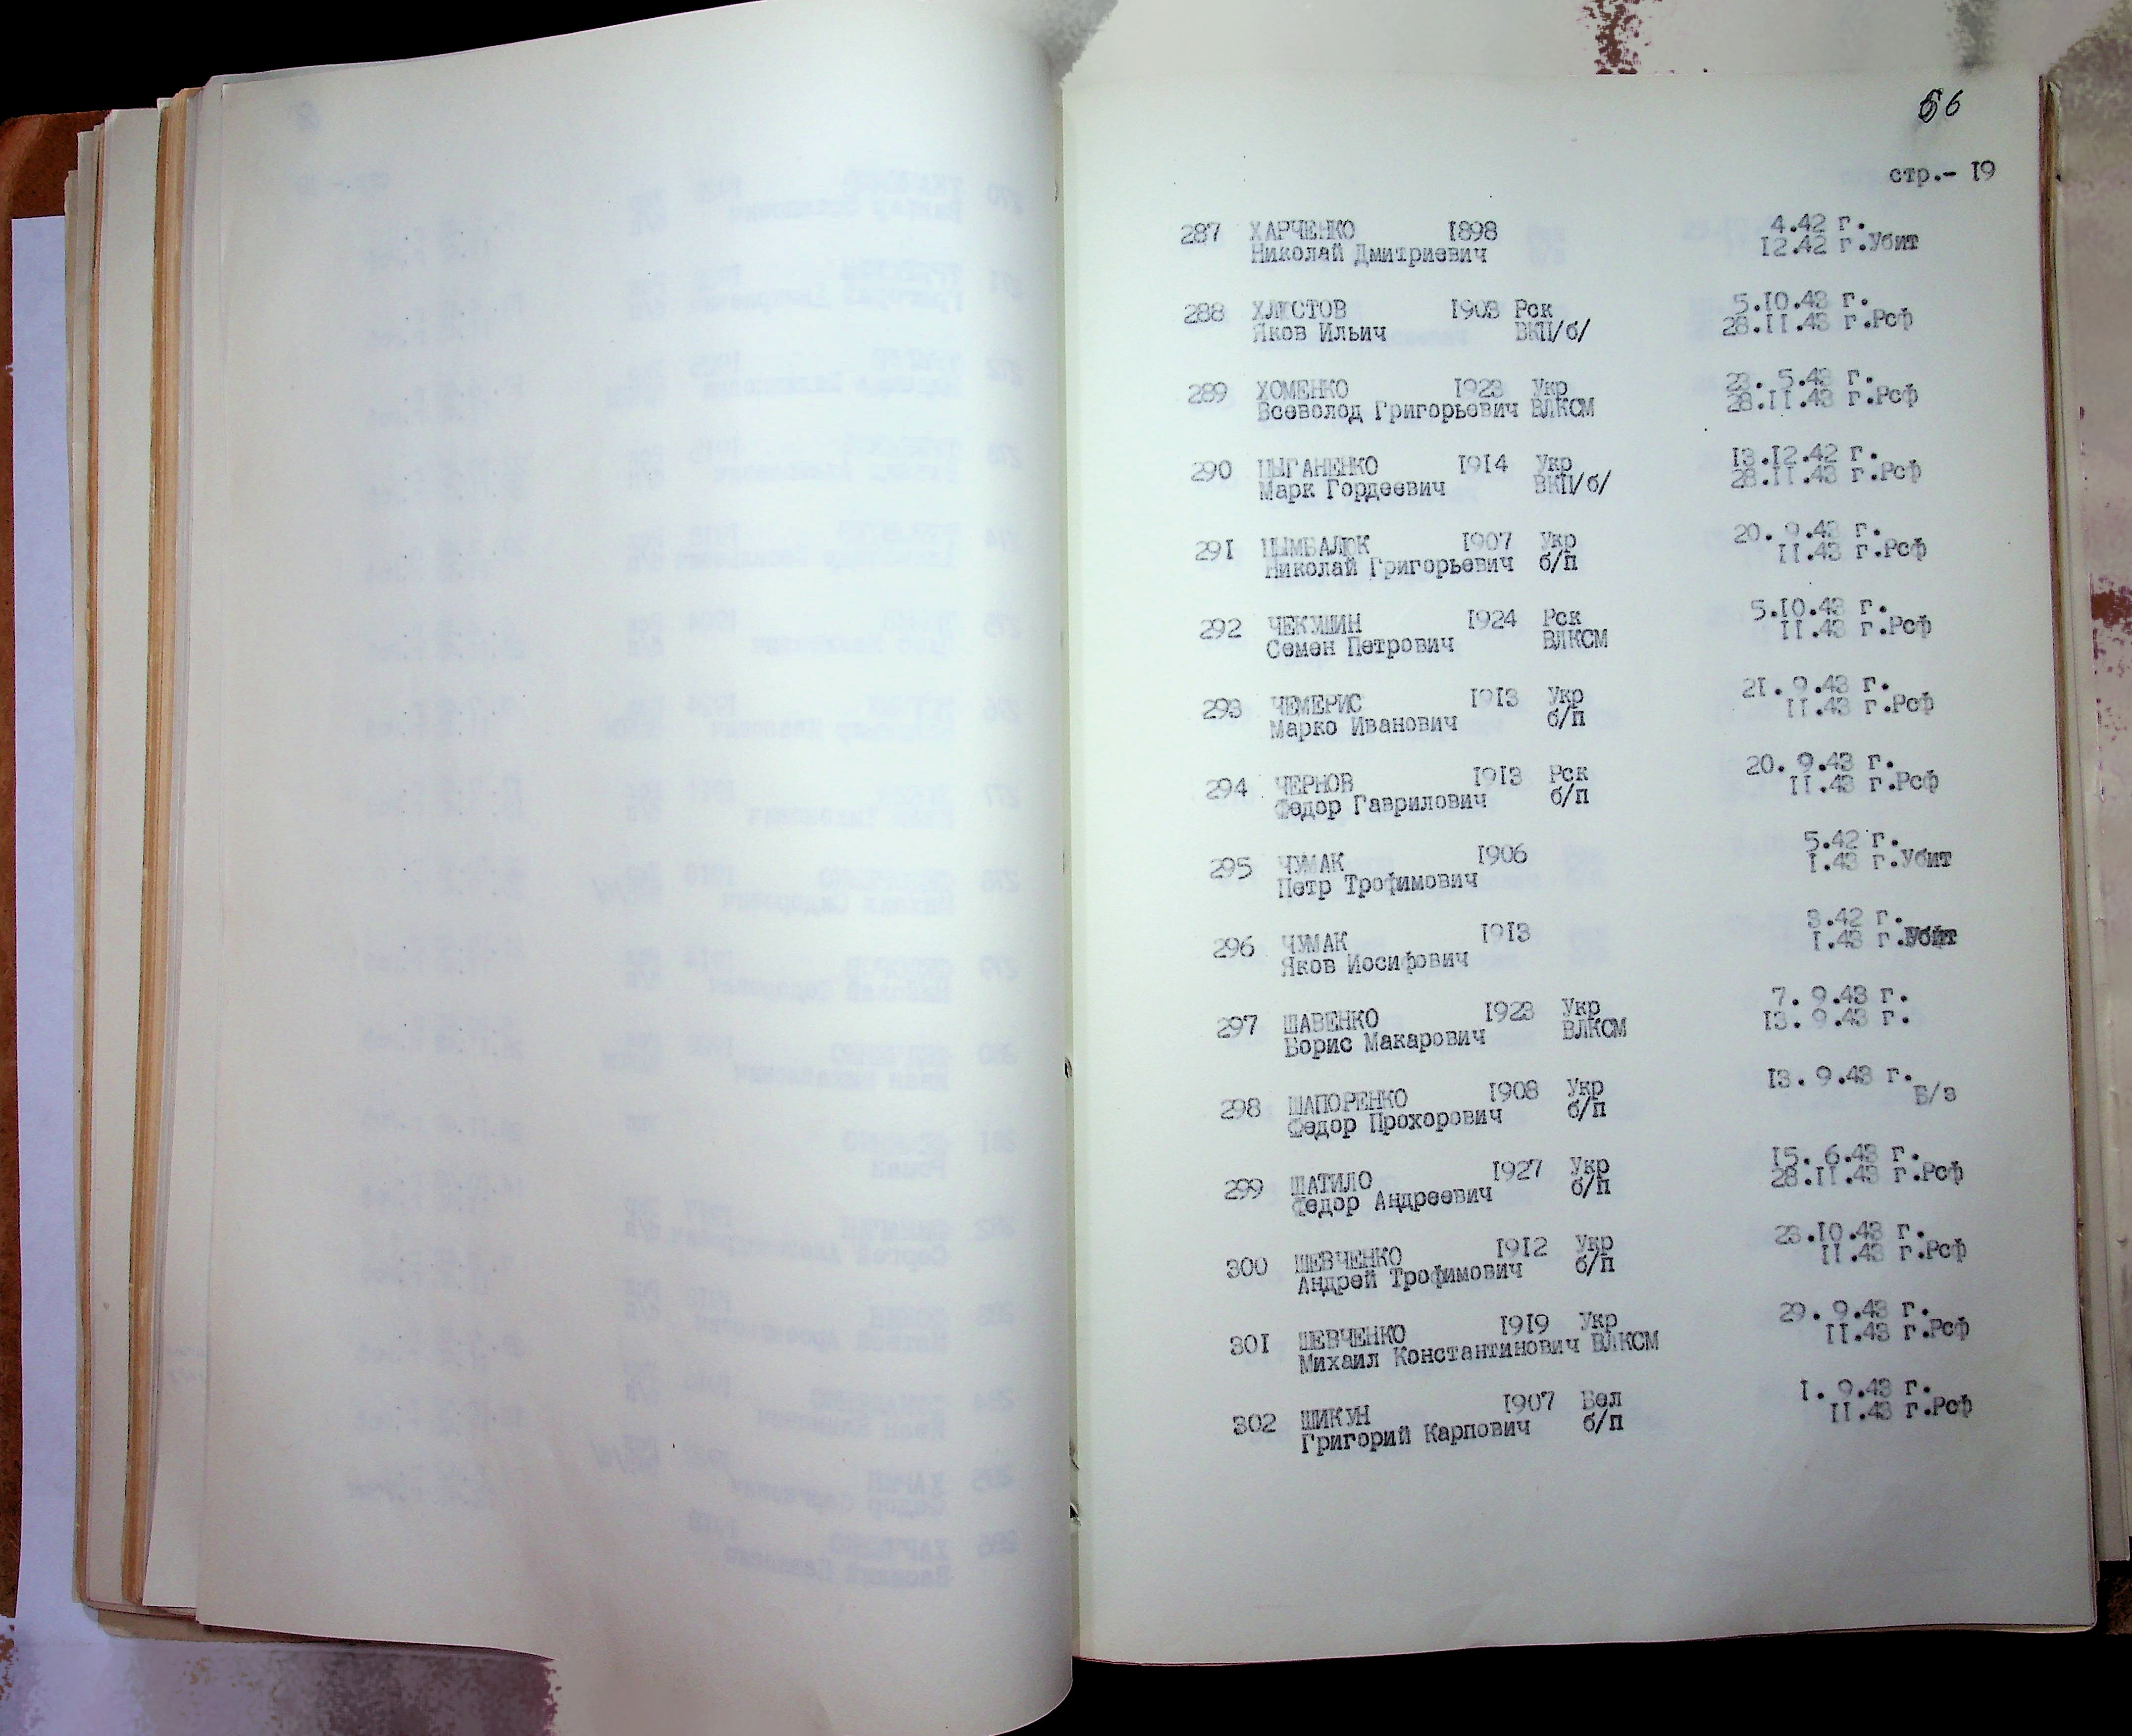 56
стр.- 19
287 ХАРЧЕНКО 1898 4.42 г.
Николай Дмитриевич 12.42 г.Убит
288 ХЛЮСТОВ 1903 Рск 5.10.43 г.
Яков Ильич ВКП/б/ 28.11.43 г.Рсф
289 ХОМЕНКО 1923 Укр 23. 5.43 г.
Всеволод Григорьевич ВЛКСМ 28.11.43 г.Рсф
290 ЦЫГАНЕНКО 1914 Укр 13.12.42 г.
Марк Гордеевич ВКП/б/ 28.11.43 г.Рсф
291 ЦЫМБАЛЮК 1907 Укр 20. 9.43 г.
Николай Григорьевич б/п 11.43 г.Рсф
292 ЧЕКУШИН 1924 Рск 5.10.43 г.
Семен Петрович ВЛКСМ 11.43 г.Рсф
293 ЧЕМЕРИС 1913 Укр 21. 9.43 г.
Марко Иванович б/п 11.43 г.Рсф
294 ЧЕРНОВ 1913 Рск 20. 9.43 г.
Федор Гаврилович б/п 11.43 г.Рсф
295 ЧУМАК 1906 5.42 г.
Петр Трофимович 1.43 г.Убит
296 ЧУМАК 1913 3.42 г.
Яков Иосифович 1.43 г.Убит
297 ШАВЕНКО 1923 Укр 7. 9.43 г.
Борис Макарович ВЛКСМ 13. 9.43 г.
298 ШАПОРЕНКО 1908 Укр 13. 9.43 г.
Федор Прохорович б/п Б/з
299 ШАТИЛО 1927 Укр 15. 6.43 г.
Федор Андреевич б/п 28.11.43 г.Рсф
300 ШЕВЧЕНКО 1912 Укр 23.10.43 г.
Андрей Трофимович б/п 11.43 г.Рсф
301 ШЕВЧЕНКО 1919 Укр 29. 9.43 г.
Михаил Константинович ВЛКСМ 11.43 г.Рсф
302 ШИКУН 1907 Бел 1. 9.43 г.
Григорий Карпович б/п 11.43 г.Рсф